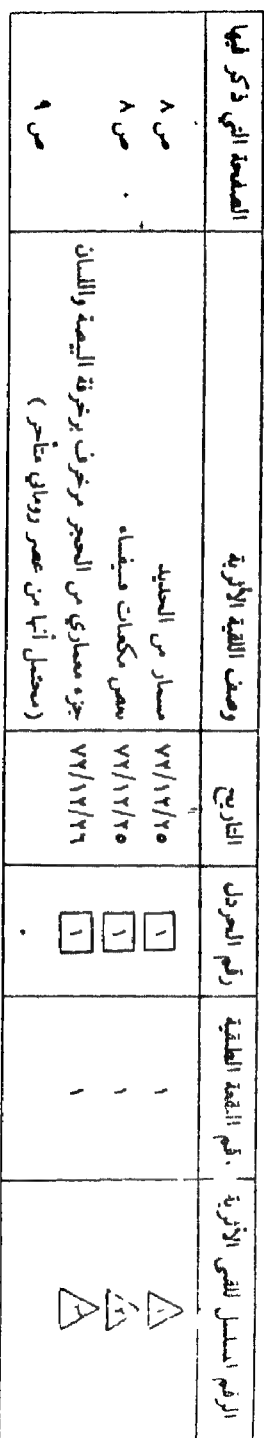 الرقم المسلسل للقى الأثرية | رقم البقعة الطبقية | رقم الجردل | التاريخ | وصف اللقية الأثرية | الصفحة التي ذكر فيها
١ | ١ | ١ | ٧٢/١٢/٢٥ | مسمار من الحديد | ص ٨
٢ | ١ | ١ | ٧٢/١٢/٢٥ | بعض مكعبات فسيفساء | ص ٨
٣ | ١ | ١ | ٧٢/١٢/٢٦ | جزء معماري من الحجر مزخرف بزخرفة البيضة واللسان
(محتمل أنها من عصر روماني متأخر) | ص ٩